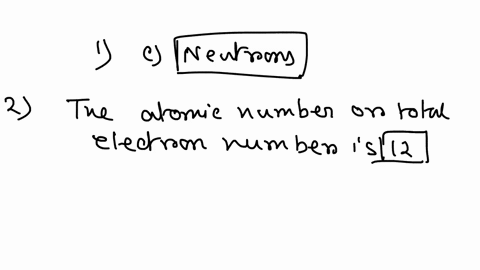 1) c) Neutrons
2) The atomic number or total
electron number is 12